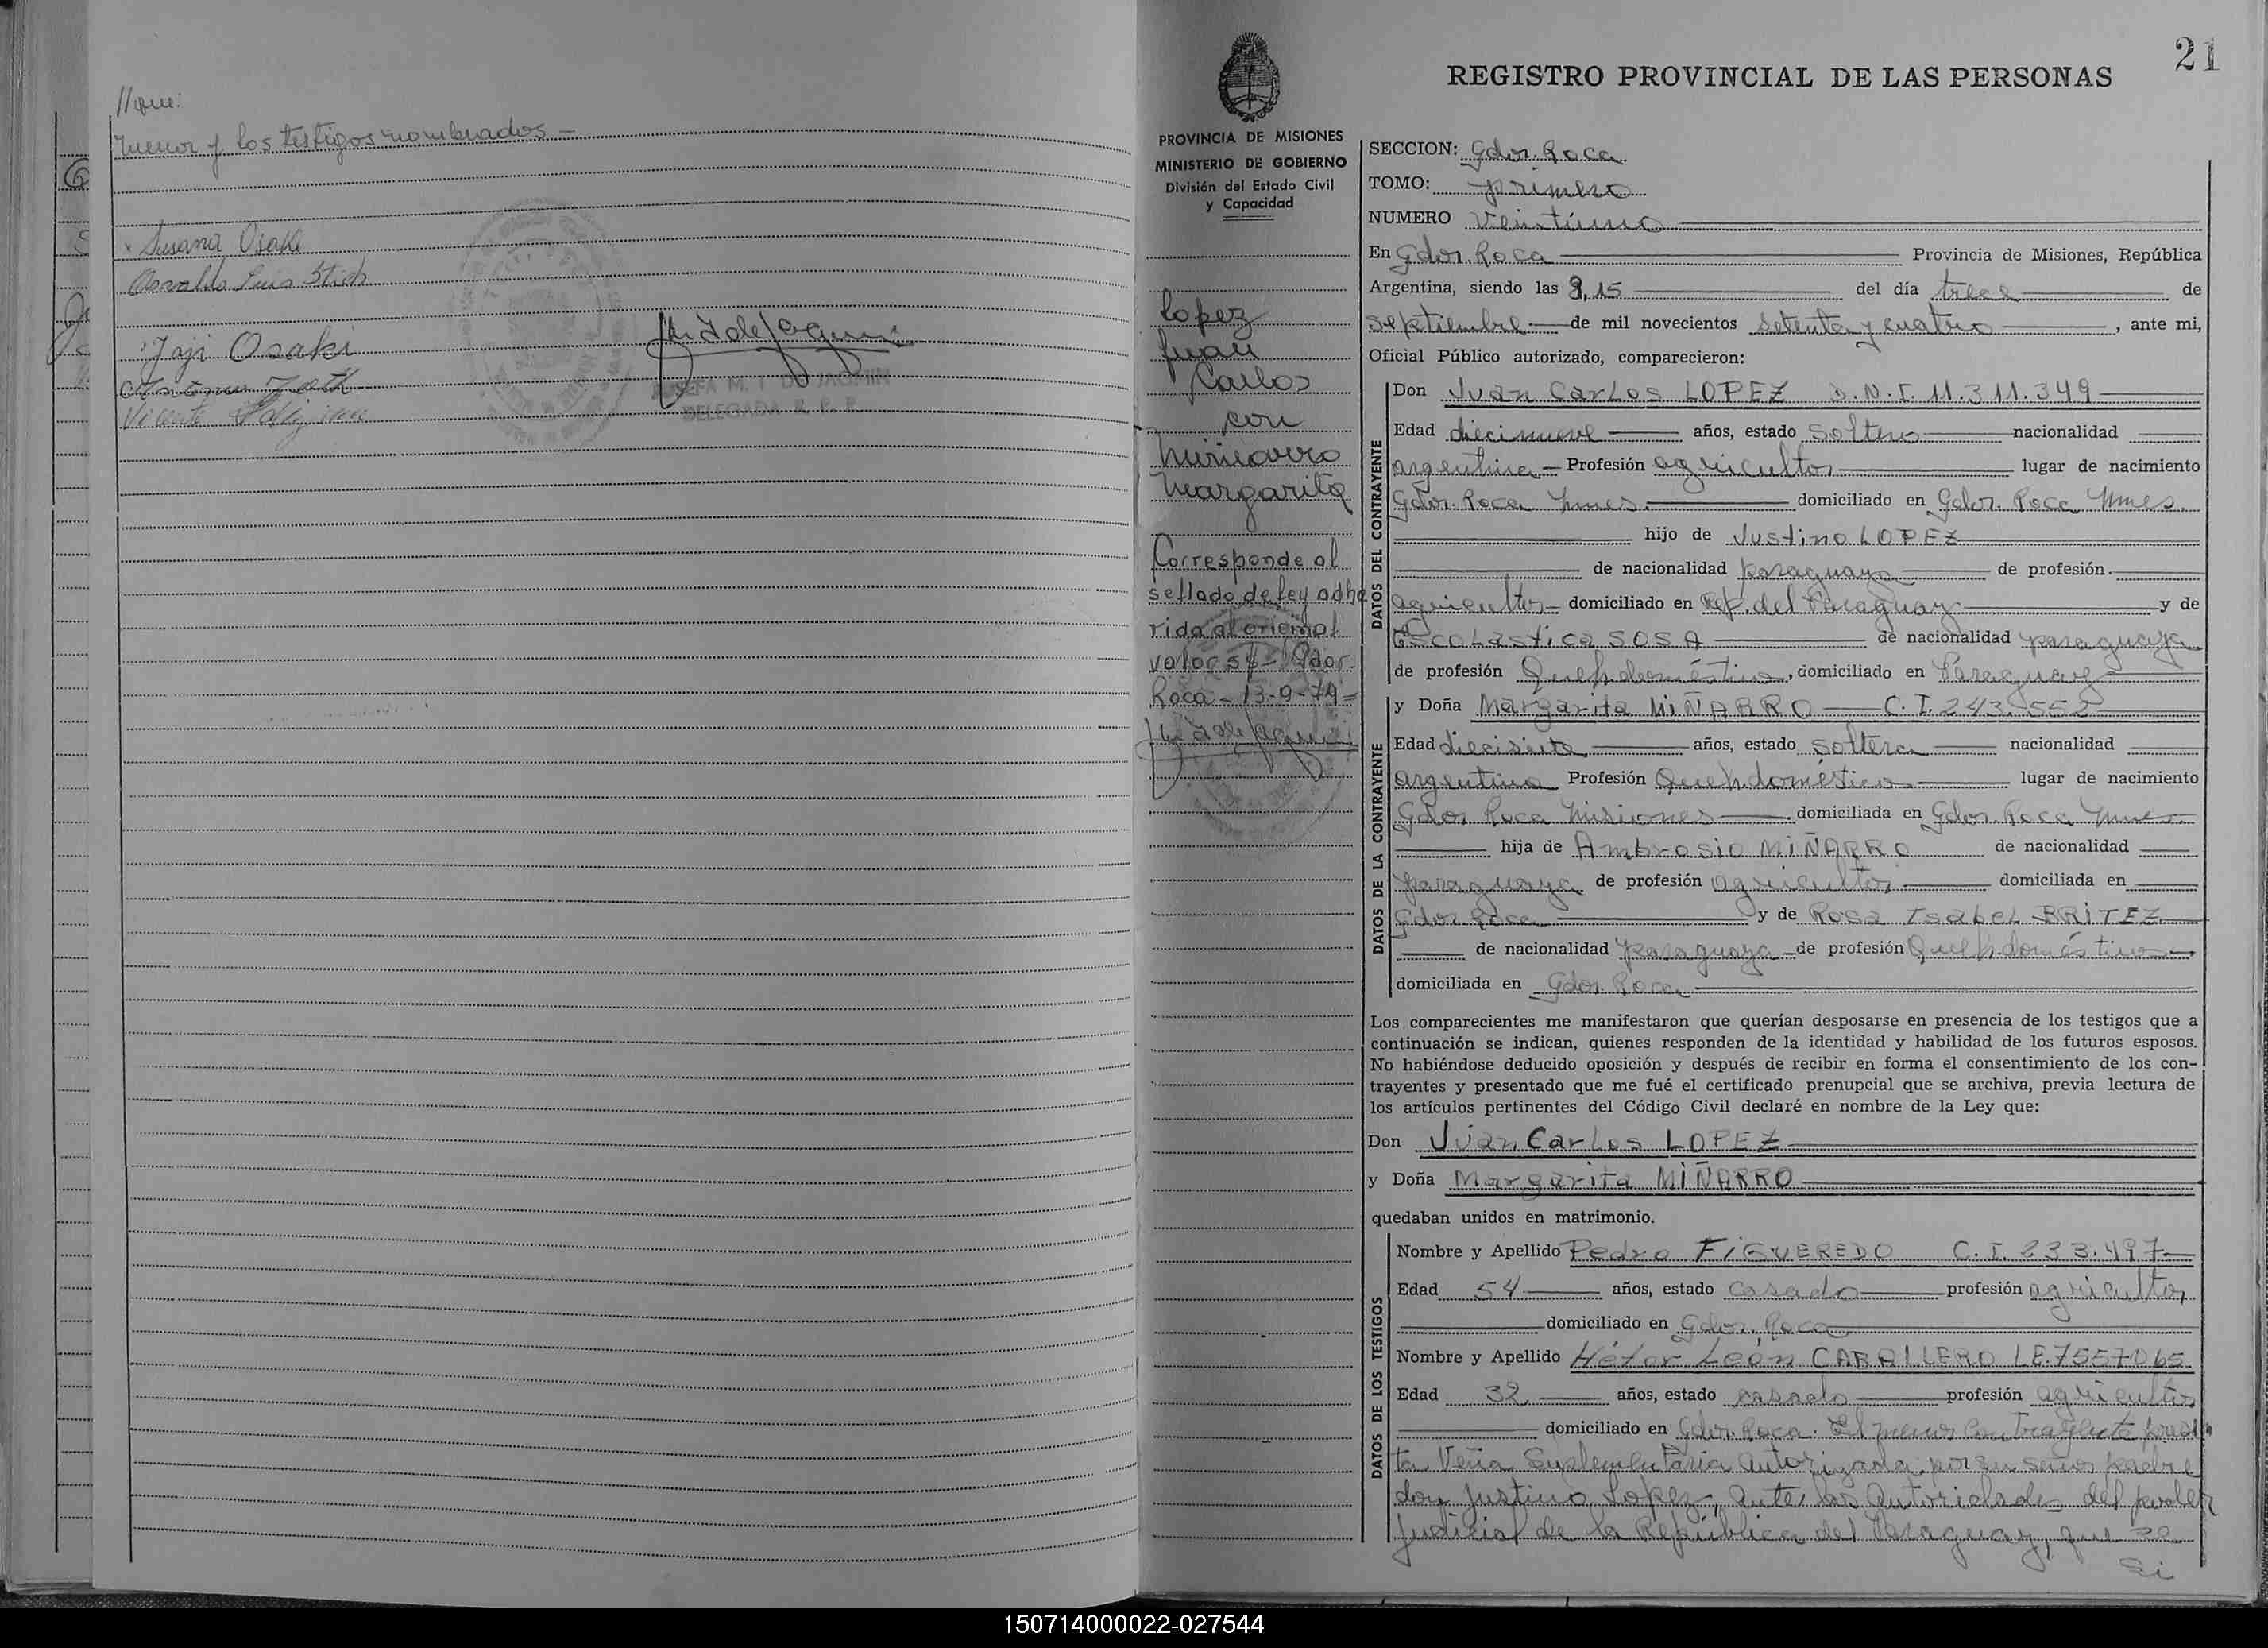 //que:
menor y los testigos nombrados –
Susana Osaki
Osvaldo Luis Stich
Joji Osaki
Vicente
JOSEFA M. I. DE JACQMIN
DELEGADA R. P. P.
21
REGISTRO PROVINCIAL DE LAS PERSONAS
PROVINCIA DE MISIONES
MINISTERIO DE GOBIERNO
División del Estado Civil
y Capacidad
Lopez
Juan
Carlos
con
Miñarro
Margarita
Corresponde al
sellado de ley adhe
rida al original
valor 5$ – Gdor.
Roca – 13-9-74 –
SECCION: Gdor. Roca
TOMO: primero
NUMERO Veintiuno
En Gdor. Roca Provincia de Misiones, República
Argentina, siendo las 9,15 del día trece de
septiembre de mil novecientos setenta y cuatro, ante mi,
Oficial Público autorizado, comparecieron:
DATOS DEL CONTRAYENTE
Don Juan Carlos LOPEZ D.N.I. 11.311.349
Edad diecinueve años, estado soltero nacionalidad
argentina – Profesión agricultor lugar de nacimiento
Gdor. Roca Mnes. domiciliado en Gdor. Roca Mnes.
hijo de Justino LOPEZ
de nacionalidad paraguaya de profesión
agricultor domiciliado en Rep. del Paraguay y de
Escolastica SOSA de nacionalidad paraguaya
de profesión Queh. domésticos, domiciliado en Paraguay
DATOS DE LA CONTRAYENTE
y Doña Margarita MIÑARRO C.I. 243.552
Edad diecisiete años, estado soltera nacionalidad
argentina Profesión Queh. doméstico lugar de nacimiento
Gdor Roca Misiones domiciliada en Gdor. Roca Mnes
hija de Ambrosio MIÑARRO de nacionalidad
paraguaya de profesión agricultor domiciliada en
Gdor Roca y de Rosa Isabel BRITEZ
de nacionalidad paraguaya de profesión Queh. domésticos
domiciliada en Gdor. Roca
Los comparecientes me manifestaron que querían desposarse en presencia de los testigos que a
continuación se indican, quienes responden de la identidad y habilidad de los futuros esposos.
No habiéndose deducido oposición y después de recibir en forma el consentimiento de los con-
trayentes y presentado que me fué el certificado prenupcial que se archiva, previa lectura de
los artículos pertinentes del Código Civil declaré en nombre de la Ley que:
Don Juan Carlos LOPEZ
y Doña Margarita MIÑARRO
quedaban unidos en matrimonio.
DATOS DE LOS TESTIGOS
Nombre y Apellido Pedro FIGUEREDO C.I. 233.497
Edad 54 años, estado casado profesión agricultor
domiciliado en Gdor. Roca
Nombre y Apellido Hétor León CABALLERO LE.7557065
Edad 32 años, estado casado profesión agricultor
domiciliado en Gdor. Roca. El menor contrayente presen
ta Venia Suplementaria autorizada por su señor padre
don Justino Lopez, ante las autoridades del poder
Judicial de la República del Paraguay, que se
150714000022-027544